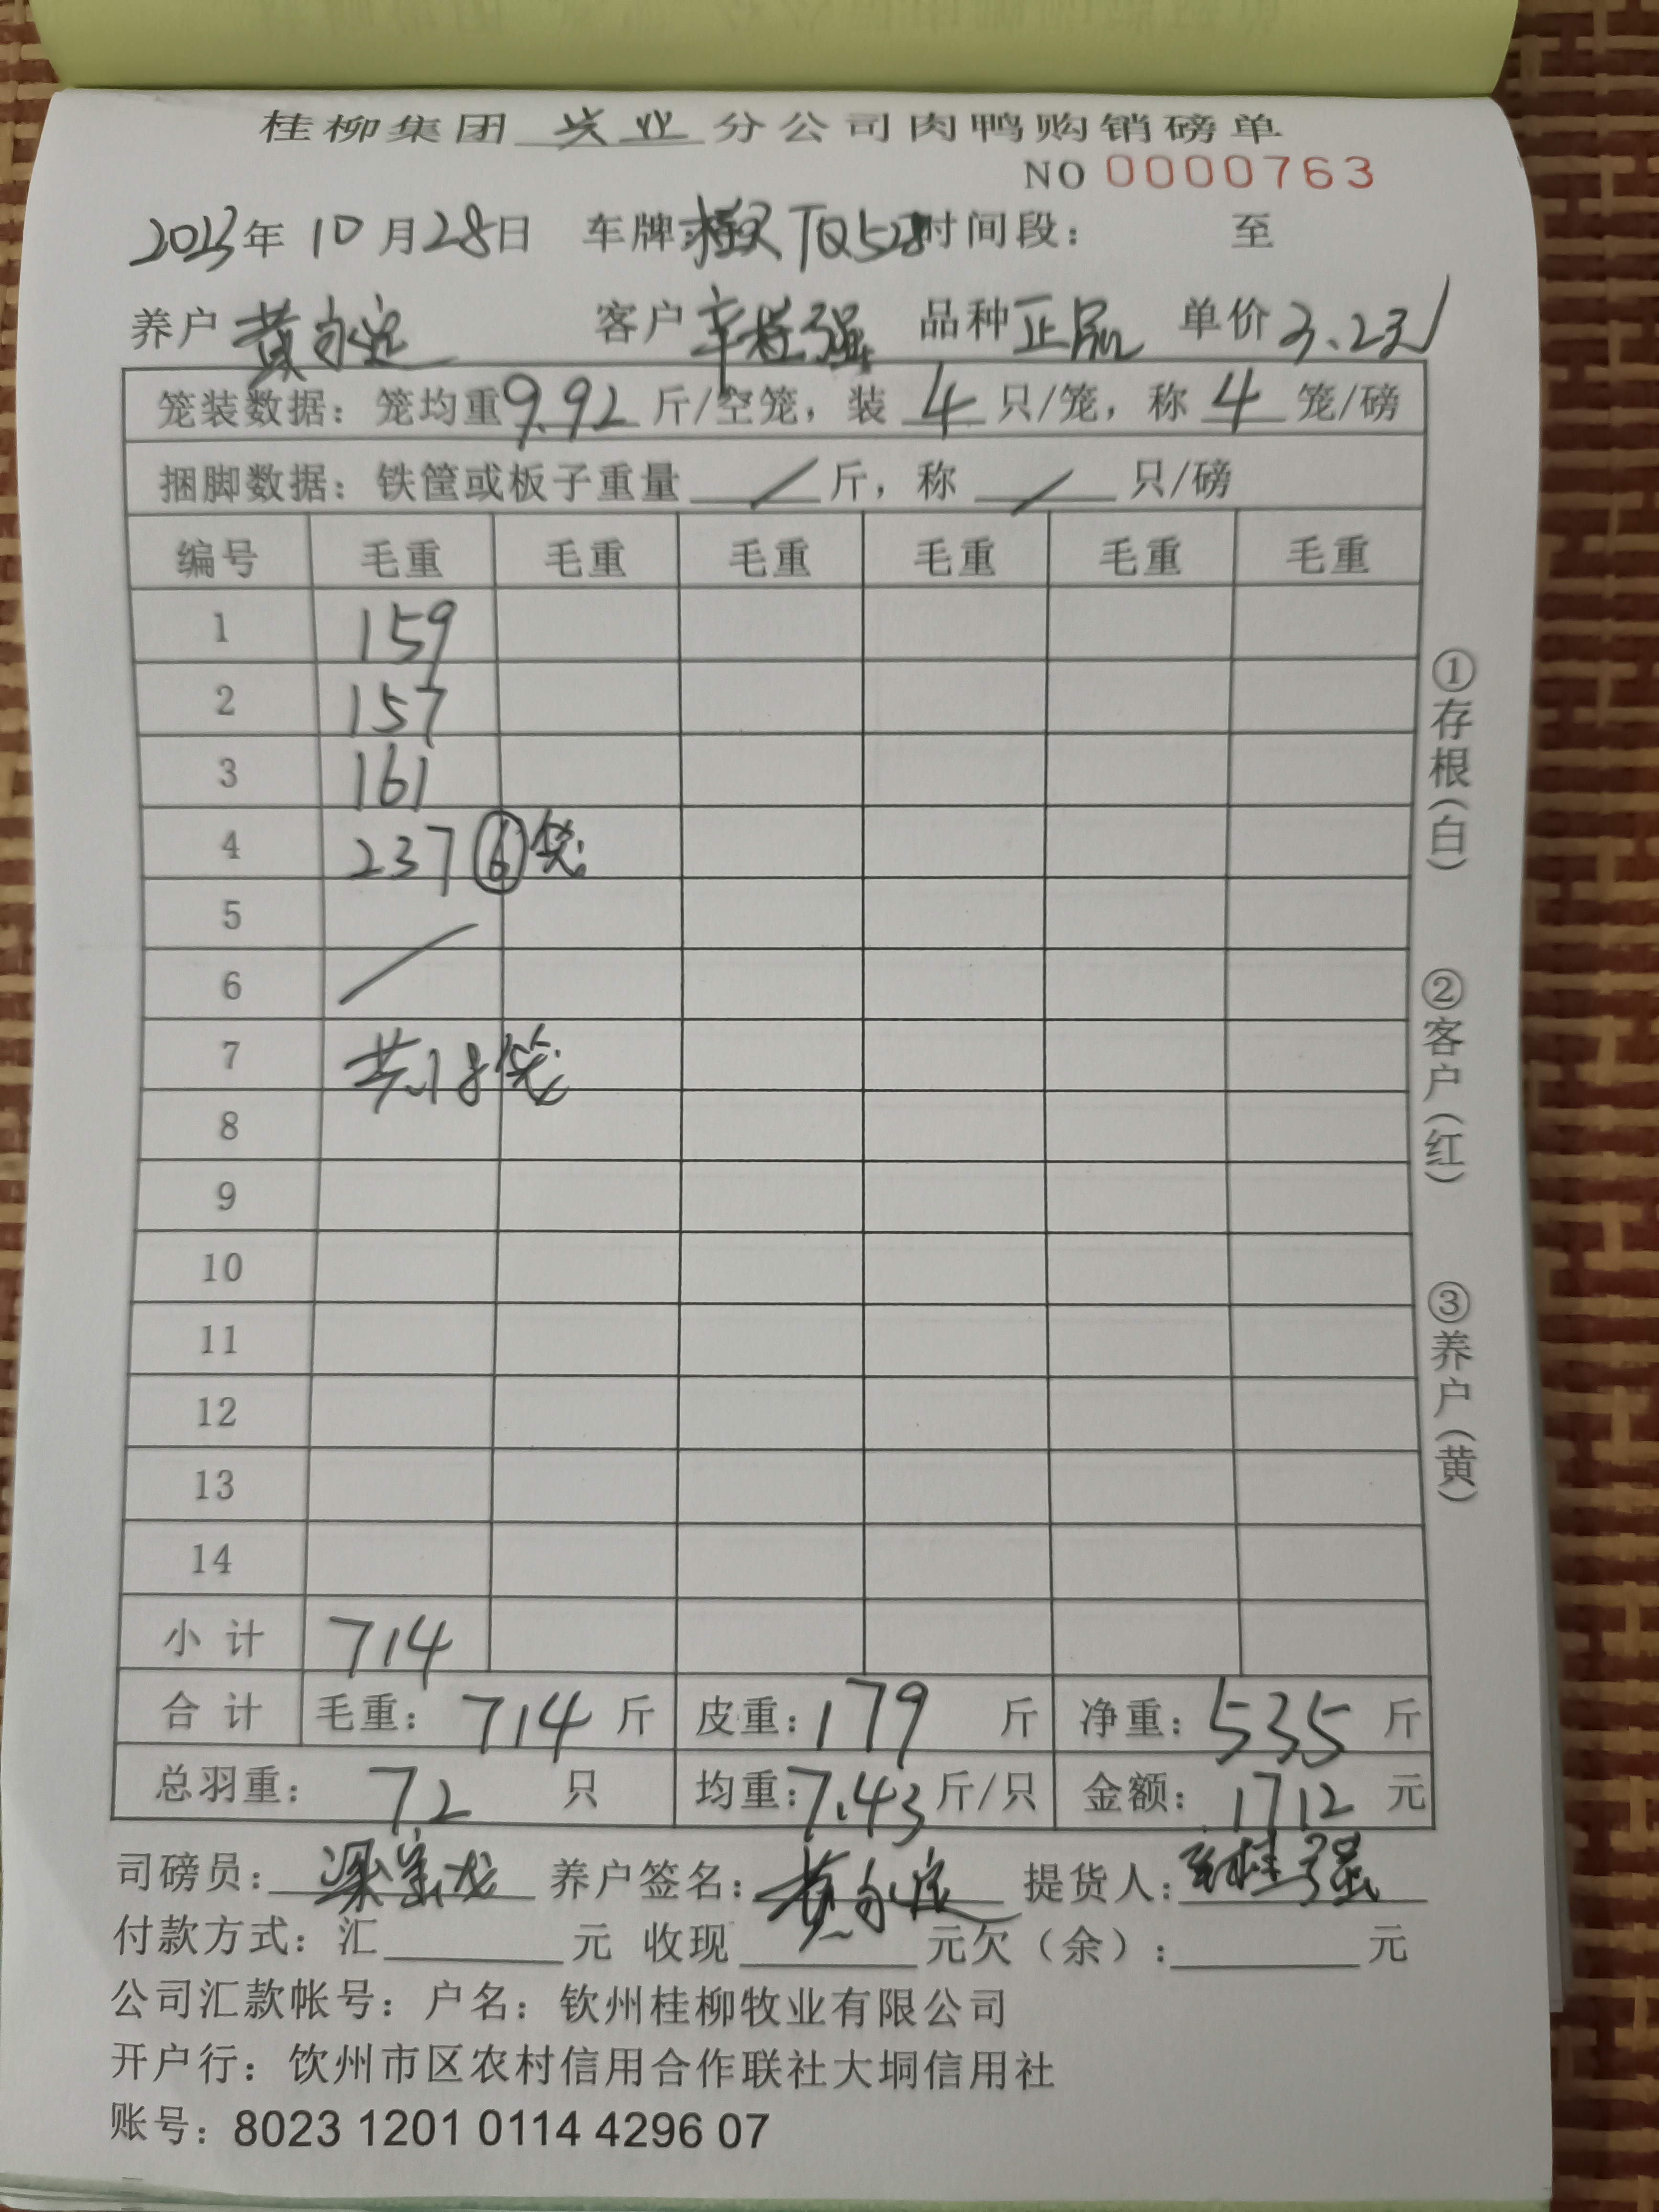 桂柳集团 兴业 分公司肉鸭购销磅单
NO 0000763
2023年 10月28日 车牌: TQ528 时间段： 至
养户 黄 定 客户 辛桂强 品种 正品 单价 3.2元
笼装数据：笼均重 9.92 斤/空笼，装 4 只/笼，称 4 笼/磅
捆脚数据：铁筐或板子重量 / 斤，称 / 只/磅
编号 毛重 毛重 毛重 毛重 毛重 毛重
1 159
2 157
3 161
4 237 ⑥笼
5
6
7 共18笼
8
9
10
11
12
13
14
小计 714
合计 毛重：714 斤 皮重：179 斤 净重：535 斤
总羽重：72 只 均重：7.43 斤/只 金额：1712 元
司磅员： 梁 龙 养户签名：黄 定 提货人： 桂强
付款方式：汇 元 收现 元欠（余）： 元
公司汇款帐号：户名：钦州桂柳牧业有限公司
开户行：饮州市区农村信用合作联社大垌信用社
账号：8023 1201 0114 4296 07
①存根（白）
②客户（红）
③养户（黄）